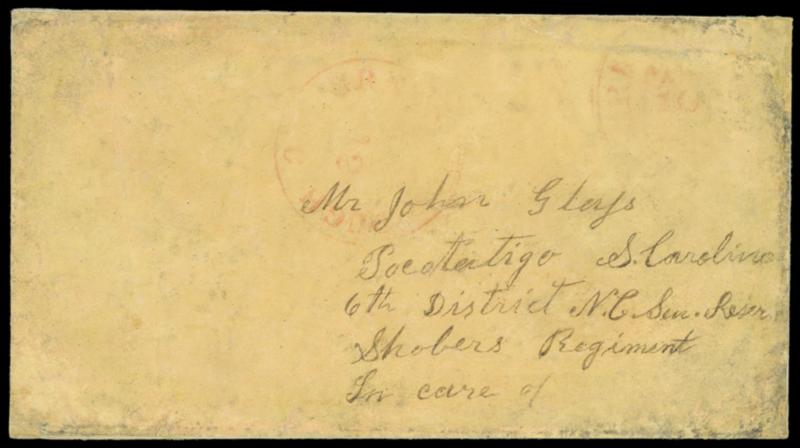 Mr John Glays
Pocotatigo S. Carolina
6th District N.C. Sen. Reser
Shobers Regiment
In care of